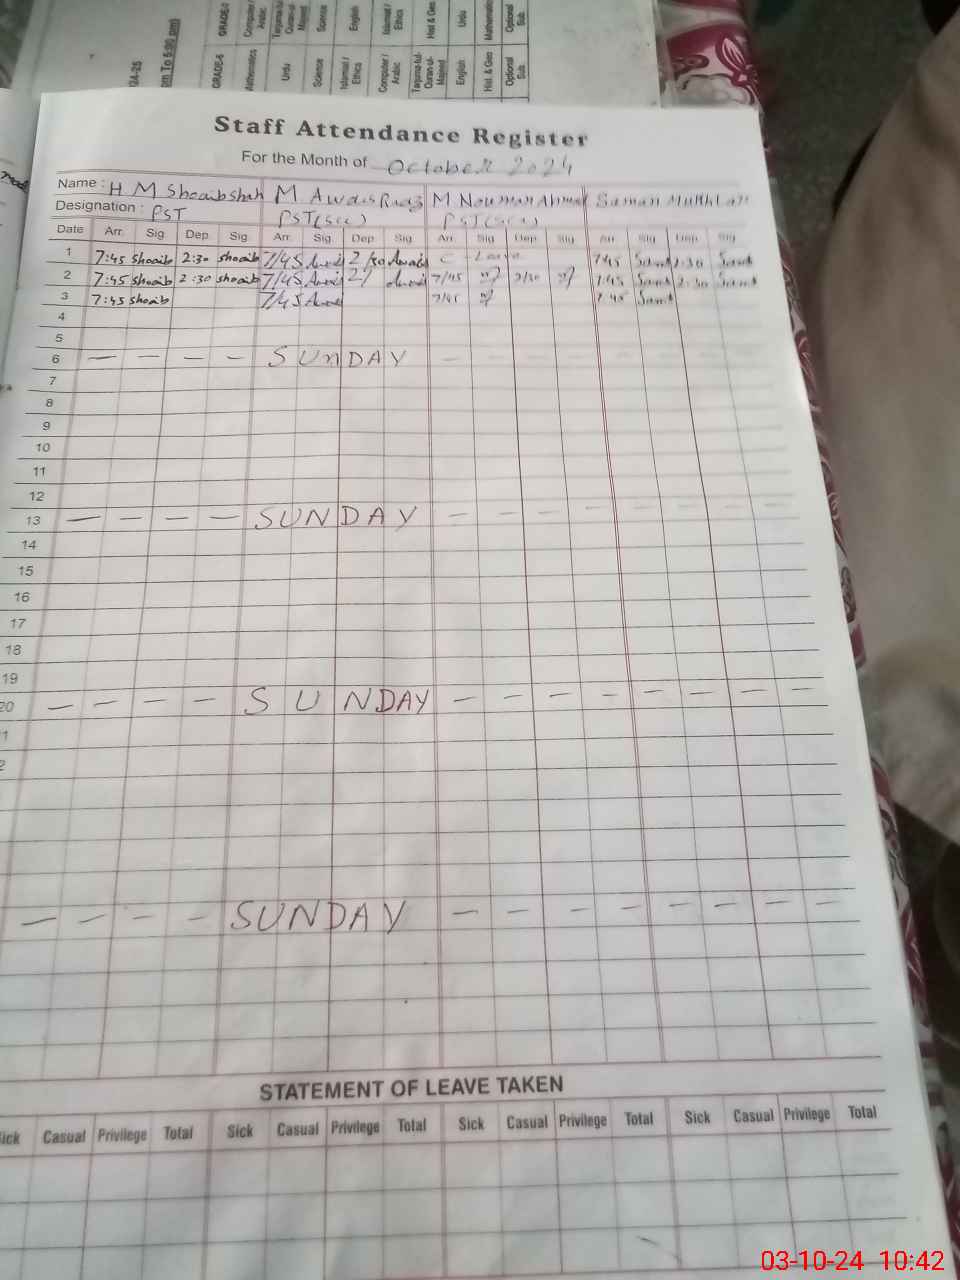 GRADE-6 Mathematics Urdu Science Islamiat / Ethics Computer / Arabic Tarjuma-tul-Quran-ul-Majeed English Hist. & Geo Optional Sub.
Staff Attendance Register
For the Month of October 2024
Name : H M Shoaib shah M Awais Riaz M Nouman Ahmad Saman
Designation : PST PST(Sci) PST(Sci)
Date Arr. Sig. Dep. Sig. Arr. Sig. Dep. Sig. Arr. Sig. Dep. Sig. Arr. Sig. Dep. Sig.
1 7:45 Shoaib 2:30 shoaib 7/45 Awais 2/30 Awais C - Leave 7:45 1:30
2 7:45 shoaib 2:30 shoaib 7/45 Awais 2/ Awais 7/45 2/30 7:45 2:30
3 7:45 shoaib 7/45 Awais 7/45 7:45
4
5
6 — — — — SUNDAY — — — —
7
8
9
10
11
12
13 — — — — SUNDAY — — — — — — — —
14
15
16
17
18
19
20 — — — — SUNDAY — — — — — — — —
1
2
— — — — SUNDAY — — — — — — — —
STATEMENT OF LEAVE TAKEN
Sick Casual Privilege Total Sick Casual Privilege Total Sick Casual Privilege Total Sick Casual Privilege Total
03-10-24 10:42